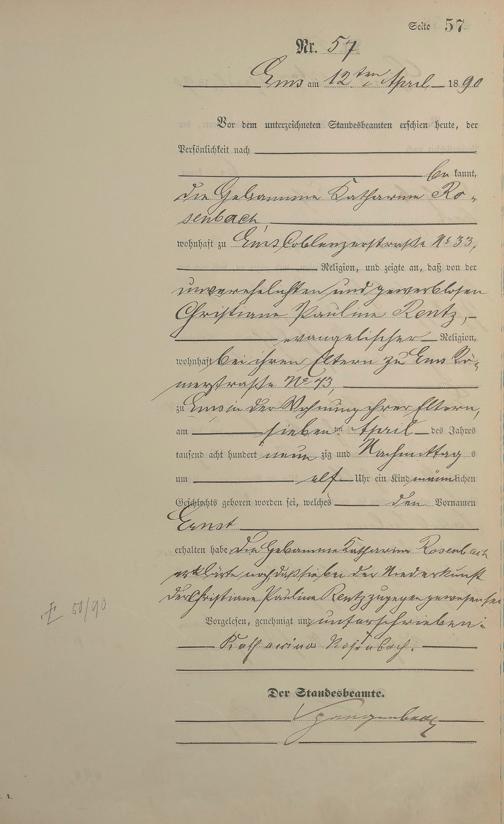 Seite 57
Nr. 57
Ems am 12ten April 1890
Vor dem unterzeichneten Standesbeamten erschien heute, der
Persönlichkeit nach
be kannt,
die Hebamme Katharina Ro-
senbach
wohnhaft zu Ems Coblenzerstraße No 33,
Religion, und zeigte an, daß von der
unverehelichten und gewerblosen
Christiane Pauline Rentz,
evangelischer Religion,
wohnhaft bei ihren Eltern zu Ems Rö-
merstraße No 73,
zu Ems in der Wohnung ihrer Eltern,
am sieben ten April des Jahres
tausend acht hundert neun zig und Nachmittag s
um elf Uhr ein Kind männlichen
Geschlechts geboren worden sei, welches den Vornamen
Ernst
erhalten habe. Die Hebamme Katharina Rosenbach
erklärte noch daß sie bei der Niederkunft
der Christiane Pauline Rentz zugegen gewesen sei
Vorgelesen, genehmigt und unterschrieben:
Katharina Rosenbach.
50/90
Der Standesbeamte.